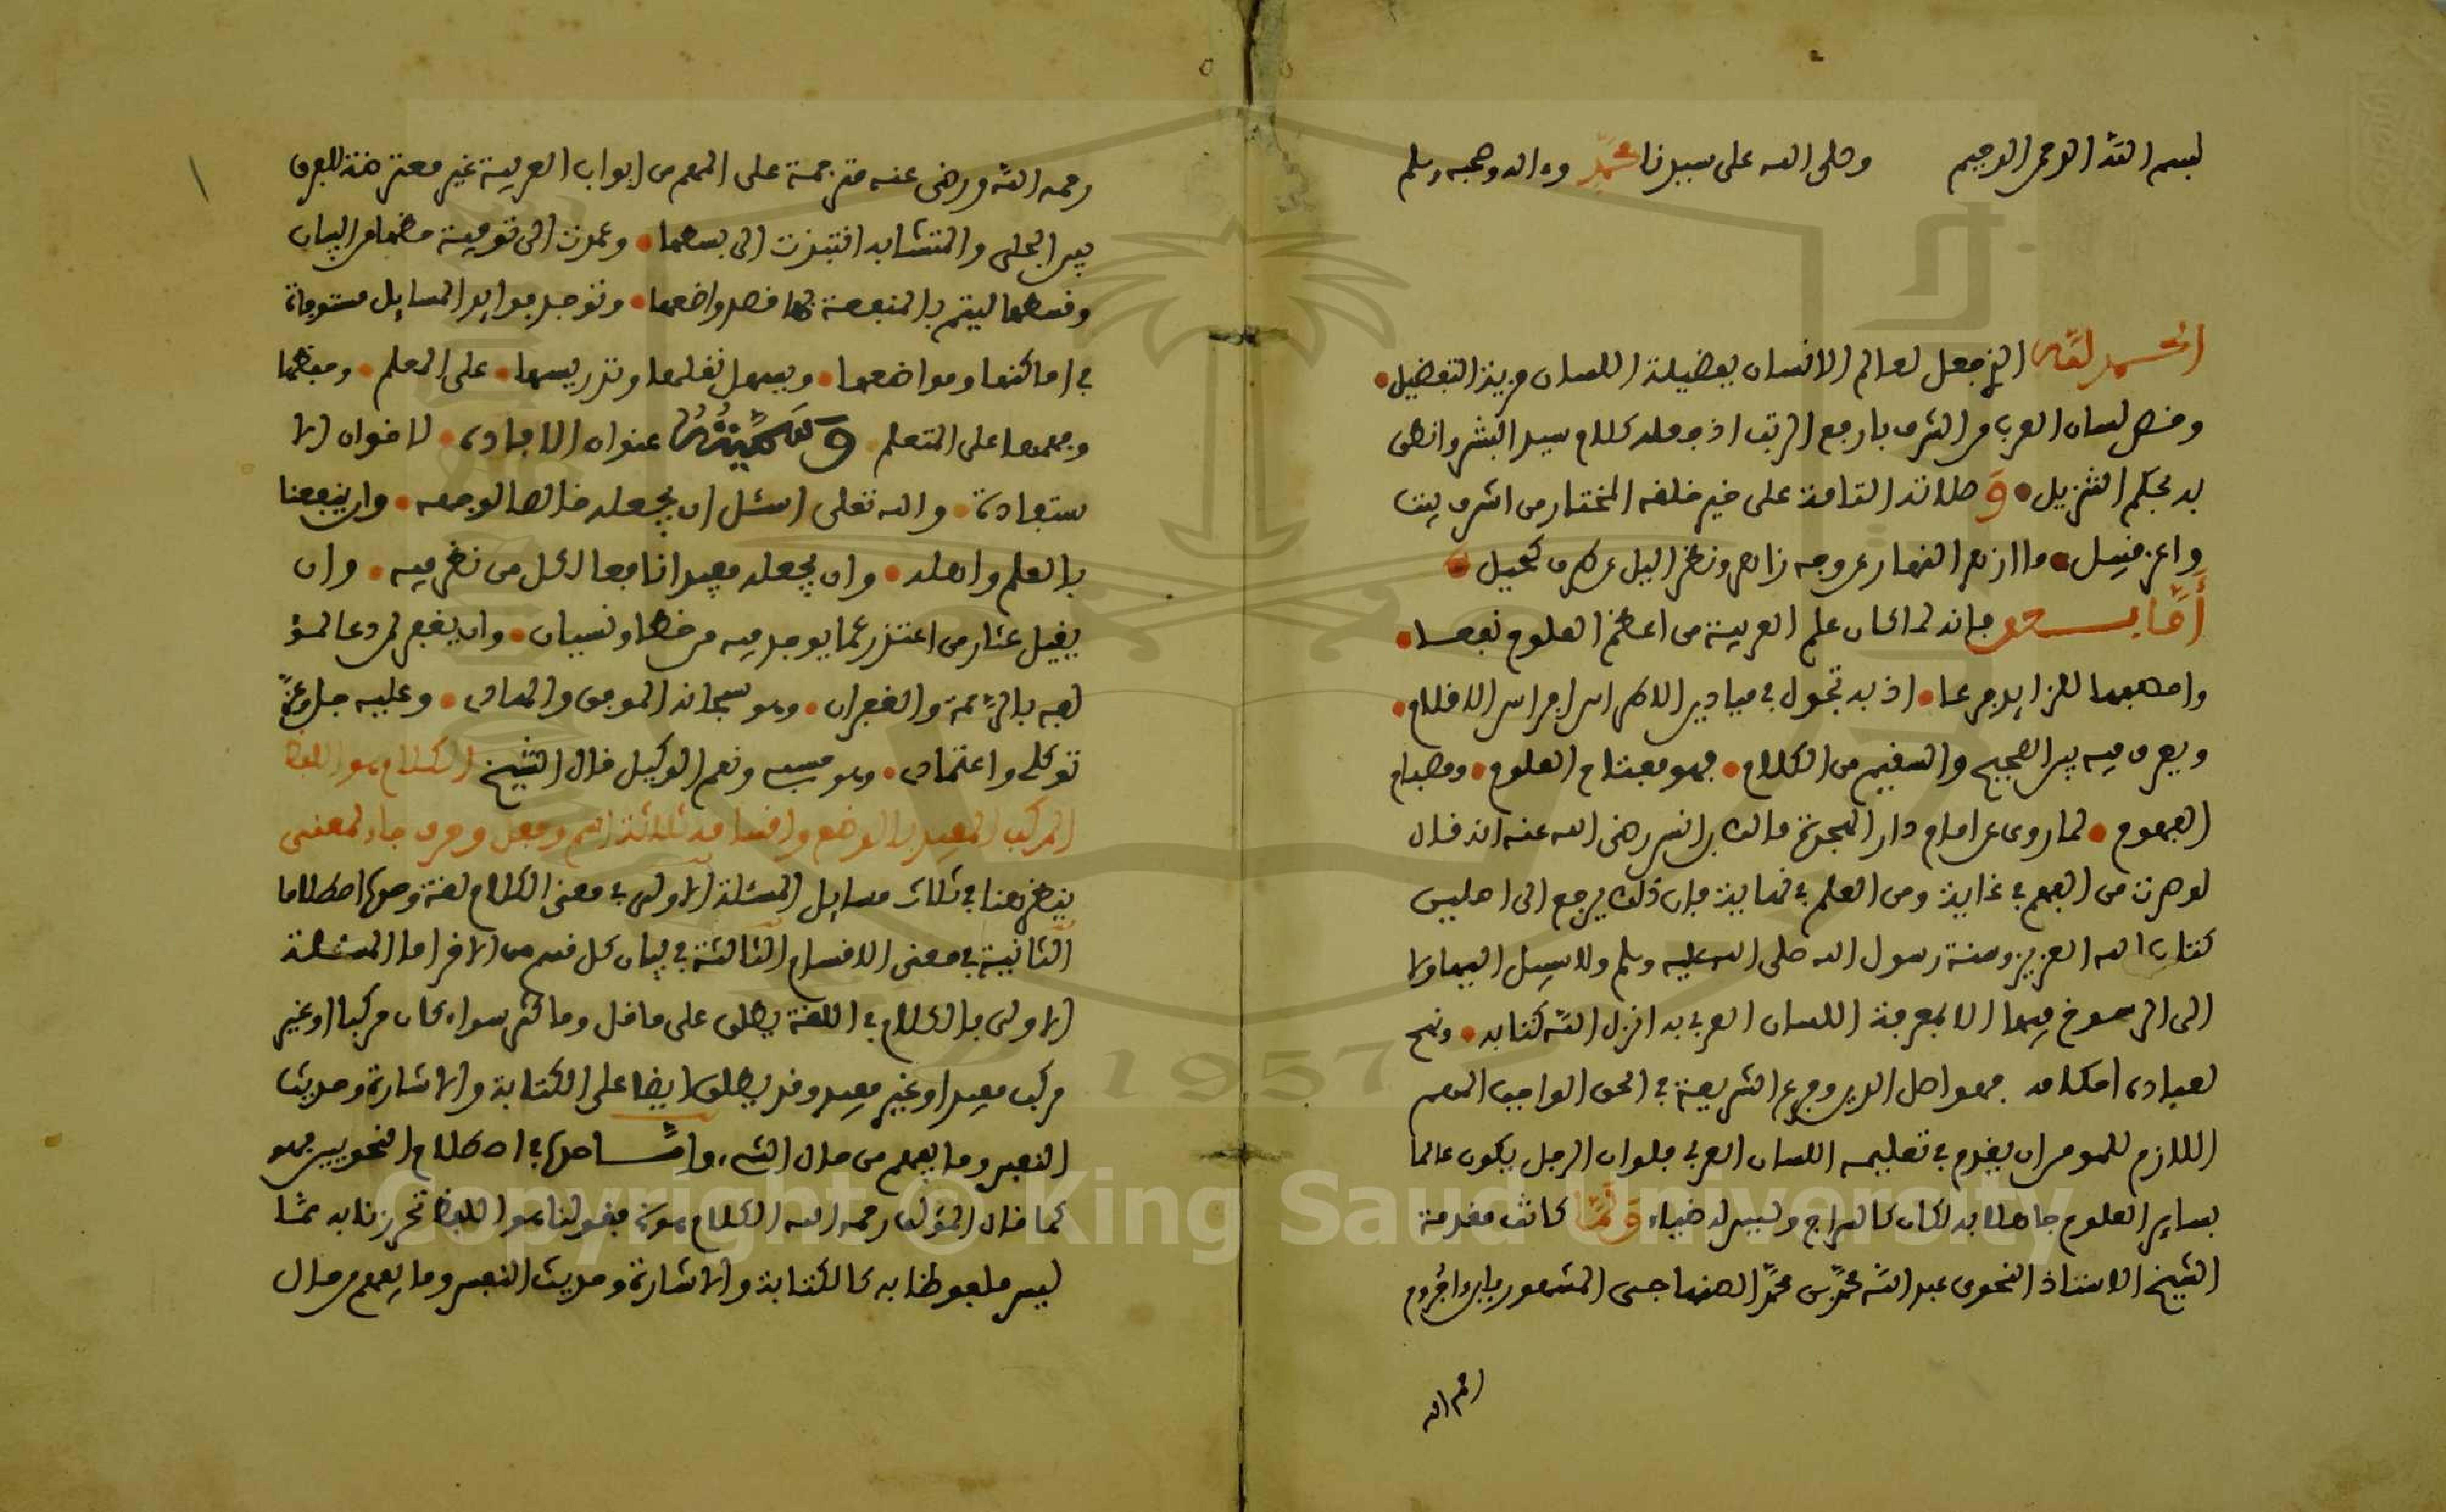 بسم الله الرحمن الرحيم وصلى الله على سيدنا محمد وءاله وصحبه وسلم
الحمد لله الذي جعل لعالم الانسان بفضيلة اللسان مزية التفضيل
وخص لسان العرب من الشرف بارفع الرتب اذ جعله كلام سيد البشر وانطق
به محكم التنزيل وصلاته التامة على خير خلقه المختار من اشرف بيت
واعز قبيل ما ازهر النهار عن وجه زاهر ونظر اليل عن طرف كحيل
أما بعد فانه لما كان علم العربية من اعظم العلوم نفعا
واصعبها للزايد فرعا اذ به تجول في ميادين الاطراس افراس الاقلام
ويعرف فيه بين الصحيح والسقيم من الكلام فهو مفتاح العلوم ومصباح
الفهوم لما روي عن امام دار الهجرة مالك بن انس رضي الله عنه انه قال
لو صرت من الفهم في غاية ومن العلم في نهاية فان ذلك يرجع الى اصلين
كتاب الله العزيز وسنة رسول الله صلى الله عليه وسلم ولا سبيل اليهما ولا
الى الرسوخ فيهما الا بمعرفة اللسان العربي به انزل الله كتابه ونهج
لعباده احكامه فهو اصل الدين وفرع الشريعة في الحق الواجب المهم
اللازم للمومن ان يقدم في تعليمه اللسان العربي فلو ان الرجل يكون عالما
بساير العلوم جاهلا به لكان كالسراج وليس له ضياء ولما كانت مقدمة
الشيخ الاستاذ النحوي عبد الله محمد بن محمد الصنهاجي المشهور بابن ءاجروم
رحمه الله
رحمه الله ورضي عنه مترجمة على المهم من ابواب العربية غير معترضة للفرق
بين الجلي والمتشابه انتبذت الى بسطها وعمدت الى توفية حظها من البيان
وقسطها ليتم بالمنفعة بها قصد واضعها وتوجد فوايد المسايل مستوفاة
في اماكنها ومواضعها ويسهل نقلها وتدريسها على المعلم وحفظها
وفهمها على المتعلم وسميته عنوان الافادة لاخوان الا
ستفادة والله تعلى اسئل ان يجعله خالصا لوجهه وان ينفعنا
بالعلم واهله وان يجعله مفيدا نافعا لكل من نظر فيه وان
يقيل عثار من اعتذر عما يوجد فيه من خطا ونسيان وان يغفر لمن دعا لمؤ
لفه بالرحمة والغفران وهو سبحانه الموفق والهادي وعليه جل وعز
توكلي واعتمادي وهو حسبي ونعم الوكيل قال الشيخ الكلام هو اللفظ
المركب المفيد بالوضع واقسامه ثلاثة اسم وفعل وحرف جاء لمعنى
ينظر هنا في ثلاث مسايل المسئلة الاولى في معنى الكلام لغة وحده اصطلاحا
الثانية في معنى الاقسام الثالثة في بيان كل قسم من الاخر اما المسئلة
الاولى فالكلام في اللغة يطلق على ما قل وما كثر سواء كان مركبا او غير
مركب مفيدا او غير مفيد وقد يطلق ايضا على الكتابة والاشارة وحديث
النفس وما يفهم من حال الشيء واما حده في اصطلاح النحويين فهو
كما قال المؤلف رحمه الله الكلام هو فقولنا هو اللفظ تحرزنا به مما
ليس ملفوظا به كالكتابة والاشارة وحديث النفس وما يفهم من حال